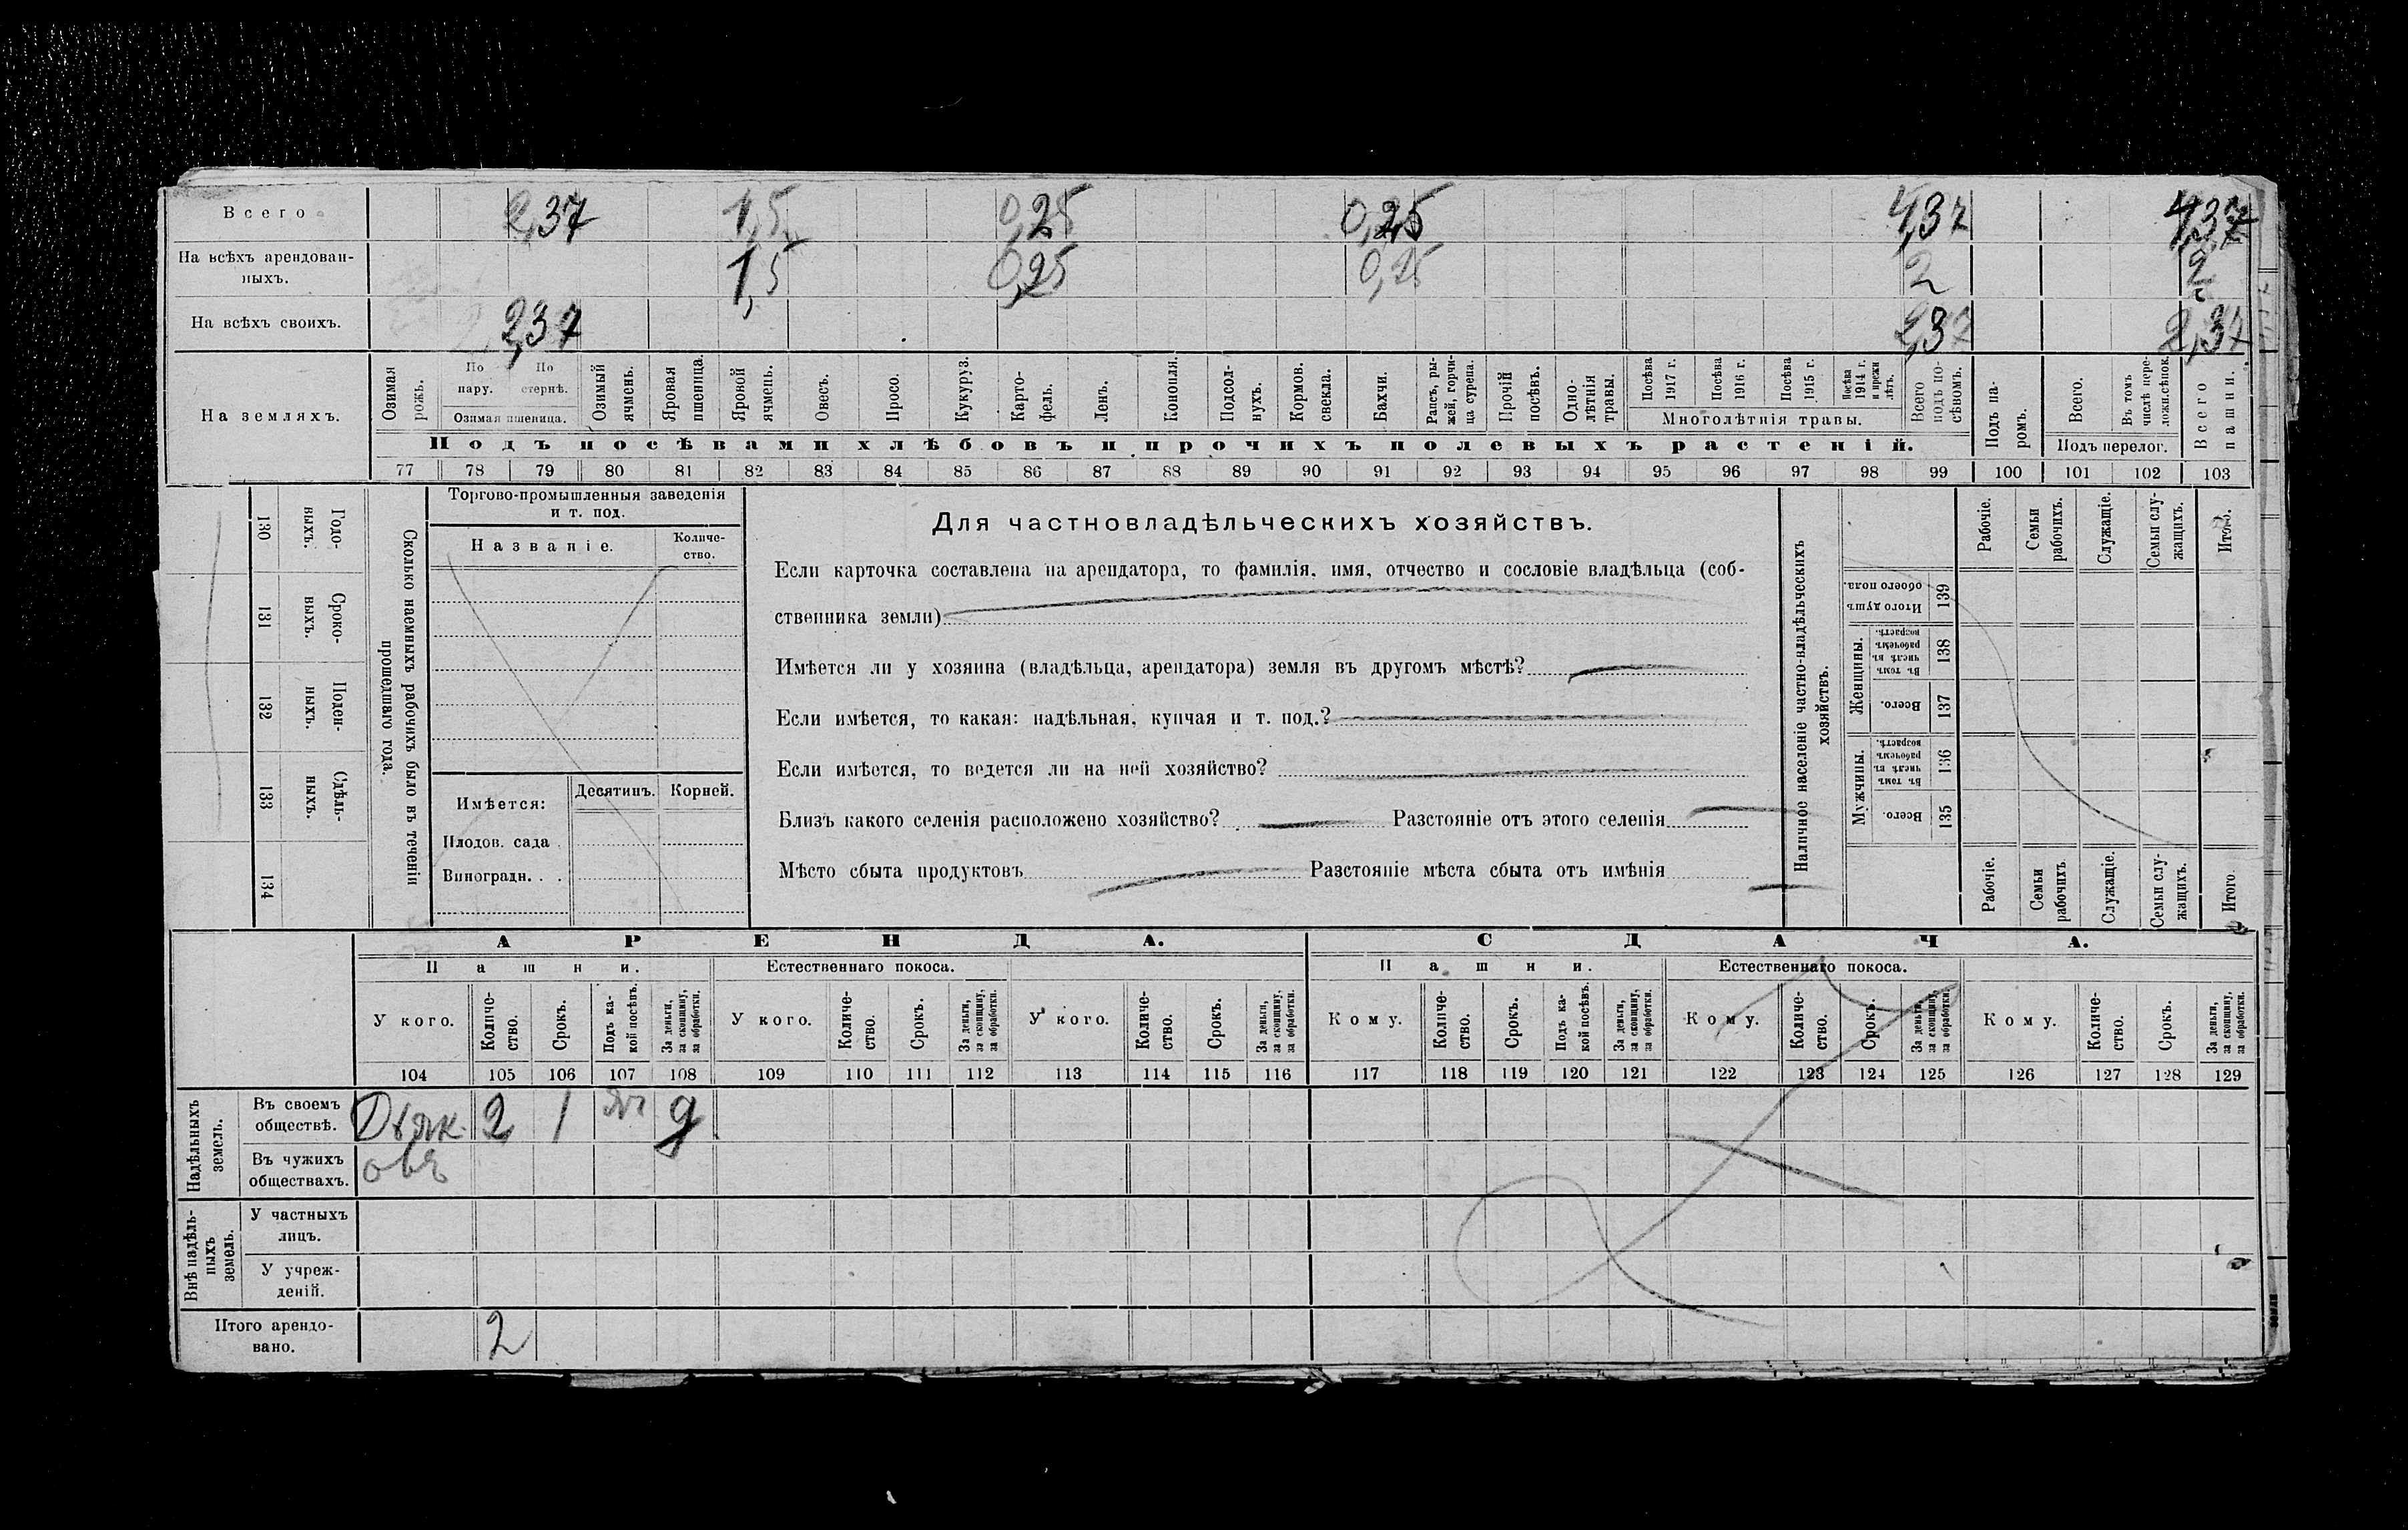 Всего 2,37 1,5 0,25 0,25 4,37 4,37
На всѣхъ арендован-
ныхъ. 1,5 0,25 0,25 2 2
На всѣхъ своихъ. 2,37 2,37 2,37
На земляхъ.
Озимая рожь.
По пару.
По стернѣ.
Озимая пшеница.
Озимый ячмень.
Яровая пшеница.
Яровой ячмень.
Овесъ.
Просо.
Кукуруз.
Карто-
фель.
Ленъ.
Конопля.
Подсол-
нухъ.
Кормов.
свекла.
Бахчи.
Рапсъ, ры-
жей, горчи-
ца сурепа.
Прочій
посѣвъ.
Одно-
лѣтнія
травы.
Посѣва 1917 г.
Посѣва 1916 г.
Посѣва 1915 г.
Посѣва 1914 г. и прежн лѣтъ.
Многолѣтнія травы.
Всего
подъ по-
сѣвомъ.
Подъ па-
ромъ.
Всего.
Въ томъ
числѣ пере-
ложн. сѣнок.
Подъ перелог.
Всего
пашни.
Подъ посѣвами хлѣбовъ и прочихъ полевыхъ растеній.
77 78 79 80 81 82 83 84 85 86 87 88 89 90 91 92 93 94 95 96 97 98 99 100 101 102 103
130 Годо-
выхъ.
131 Сроко-
выхъ.
132 Поден-
ныхъ.
133 Сдѣль-
ныхъ.
134
Сколько наемныхъ рабочихъ было въ теченіи
прошедшаго года.
Торгово-промышленныя заведенія
и т. под.
Названіе.
Количе-
ство.
Имѣется:
Десятинъ. Корней.
Плодов. сада
Виноградн. . .
Для частновладѣльческихъ хозяйствъ.
Если карточка составлена на арендатора, то фамилія, имя, отчество и сословіе владѣльца (соб-
ственника земли)
Имѣется ли у хозяина (владѣльца, арендатора) земля въ другомъ мѣстѣ?
Если имѣется, то какая: надѣльная, купчая и т. под.?
Если имѣется, то ведется ли на ней хозяйство?
Близъ какого селенія расположено хозяйство? Разстояніе отъ этого селенія
Мѣсто сбыта продуктовъ Разстояніе мѣста сбыта отъ имѣнія
Наличное населеніе частно-владѣльческихъ
хозяйствъ.
Рабочіе.
Семьи
рабочихъ.
Служащіе.
Семьи слу-
жащихъ.
Итого.
Итого душъ
обоего пола.
139
Женщины.
Въ томъ
числѣ въ
рабочемъ
возрастѣ.
138
Всего.
137
Мужчины.
Въ томъ
числѣ въ
рабочемъ
возрастѣ.
136
Всего.
135
Рабочіе.
Семьи
рабочихъ
Служащіе.
Семьи слу-
жащихъ.
Итого
АРЕНДА. СДАЧА.
Пашни. Естественнаго покоса. Пашни. Естественнаго покоса.
У кого.
Количе-
ство.
Срокъ.
Подъ ка-
кой посѣвъ.
За деньги,
за скопщину,
за обработки.
У кого.
Количе-
ство.
Срокъ.
За деньги,
за скопщину,
за обработки.
У кого.
Количе-
ство.
Срокъ.
За деньги,
за скопщину,
за обработки.
Кому.
Количе-
ство.
Срокъ.
Подъ ка-
кой посѣвъ.
За деньги,
за скопщину,
за обработки.
Кому.
Количе-
ство.
Срокъ.
За деньги,
за скопщину,
за обработки.
Кому.
Количе-
ство.
Срокъ.
За деньги,
за скопщину,
за обработки.
104 105 106 107 108 109 110 111 112 113 114 115 116 117 118 119 120 121 122 123 124 125 126 127 128 129
Надѣльныхъ
земель.
Въ своемъ
обществѣ. 2 1 д
Въ чужихъ
обществахъ.
Внѣ надѣль-
ныхъ
земель.
У частныхъ
лицъ.
У учреж-
деній.
Итого арендо-
вано. 2